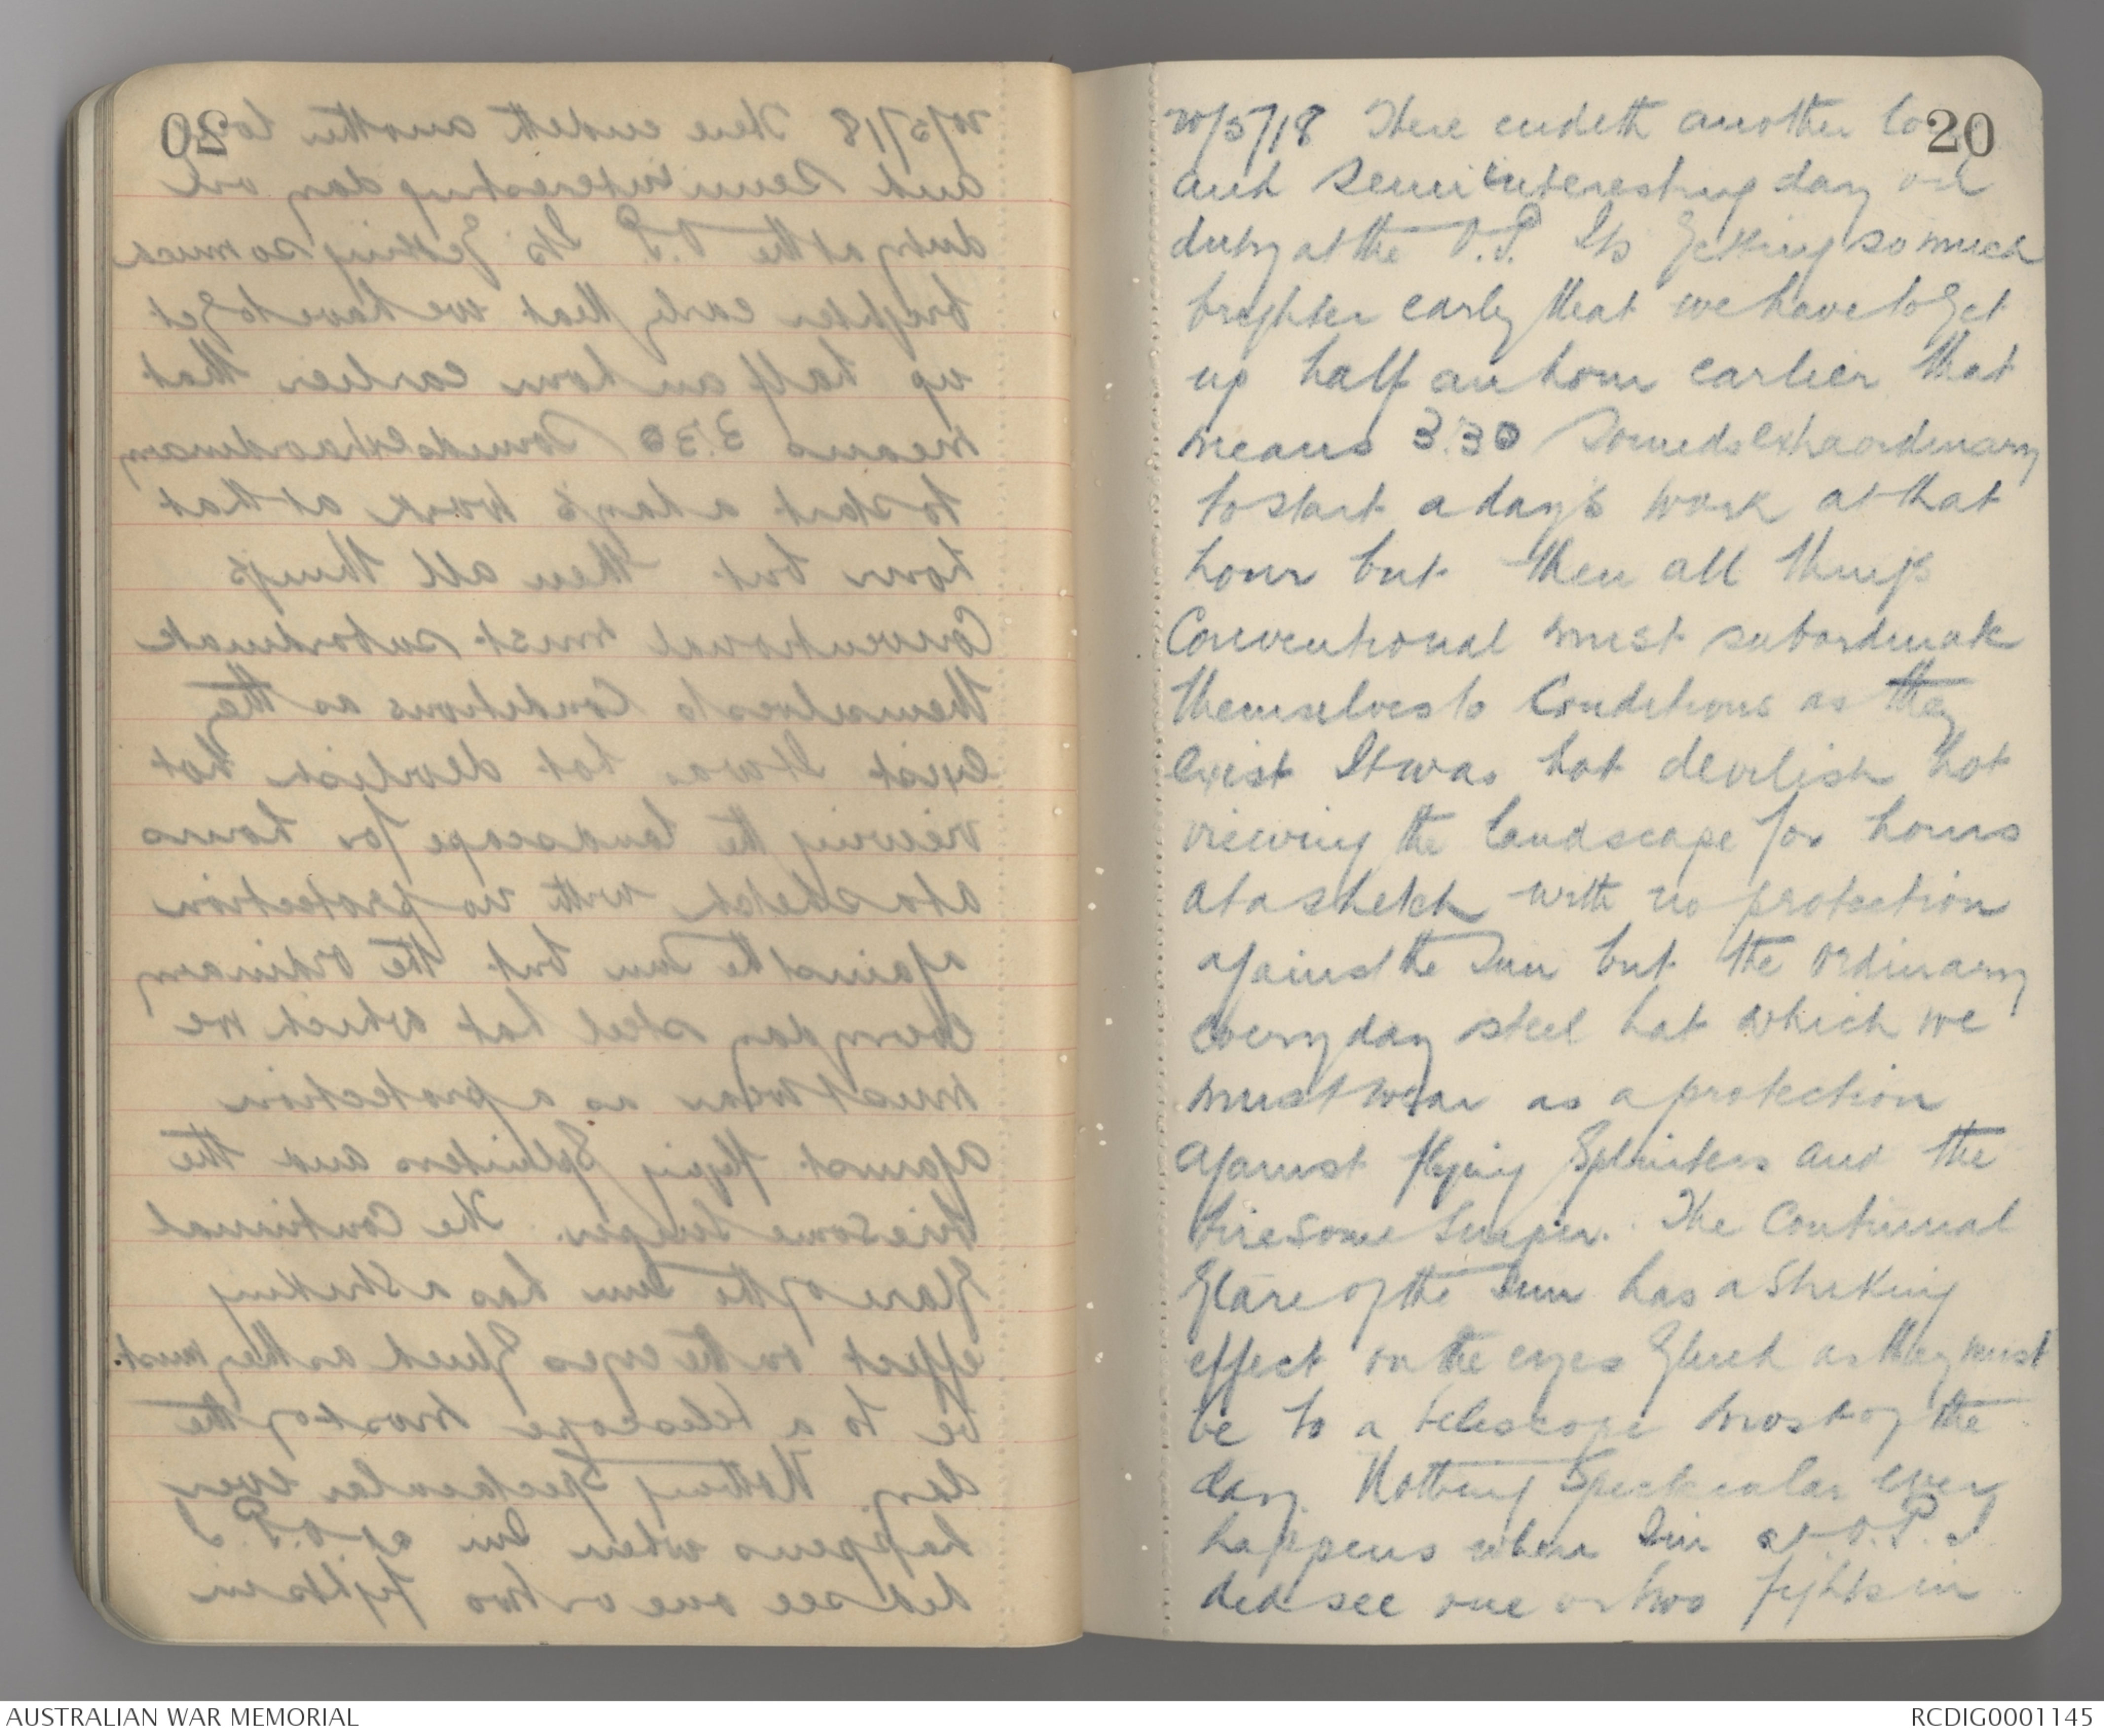 20
20/5/18 There endeth another lo
and semi interesting day on
duty at the O.P. Its getting so much
brighter early that we have to get
up half an hour earlier that
means 3.30 Sounds extraordinary
to start a day's work at that
hour but then all things
Conventional must subordinate
themselves to Conditions as they
exist It was hot devilish hot
viewing the landscape for hours
at a stretch with no protection
against the Sun but the ordinary
everyday steel hat which we
must wear as a protection
against flying Splinters and the
tiresome Sniper. The Continual
Glare of the Sun has a Striking
effect on the eyes Glued as they must
be to a telescope most of the
day. Nothing Spectacular ever
happens when Im at O.P. I
did see one or two fights in
AUSTRALIAN WAR MEMORIAL
RCDIG0001145